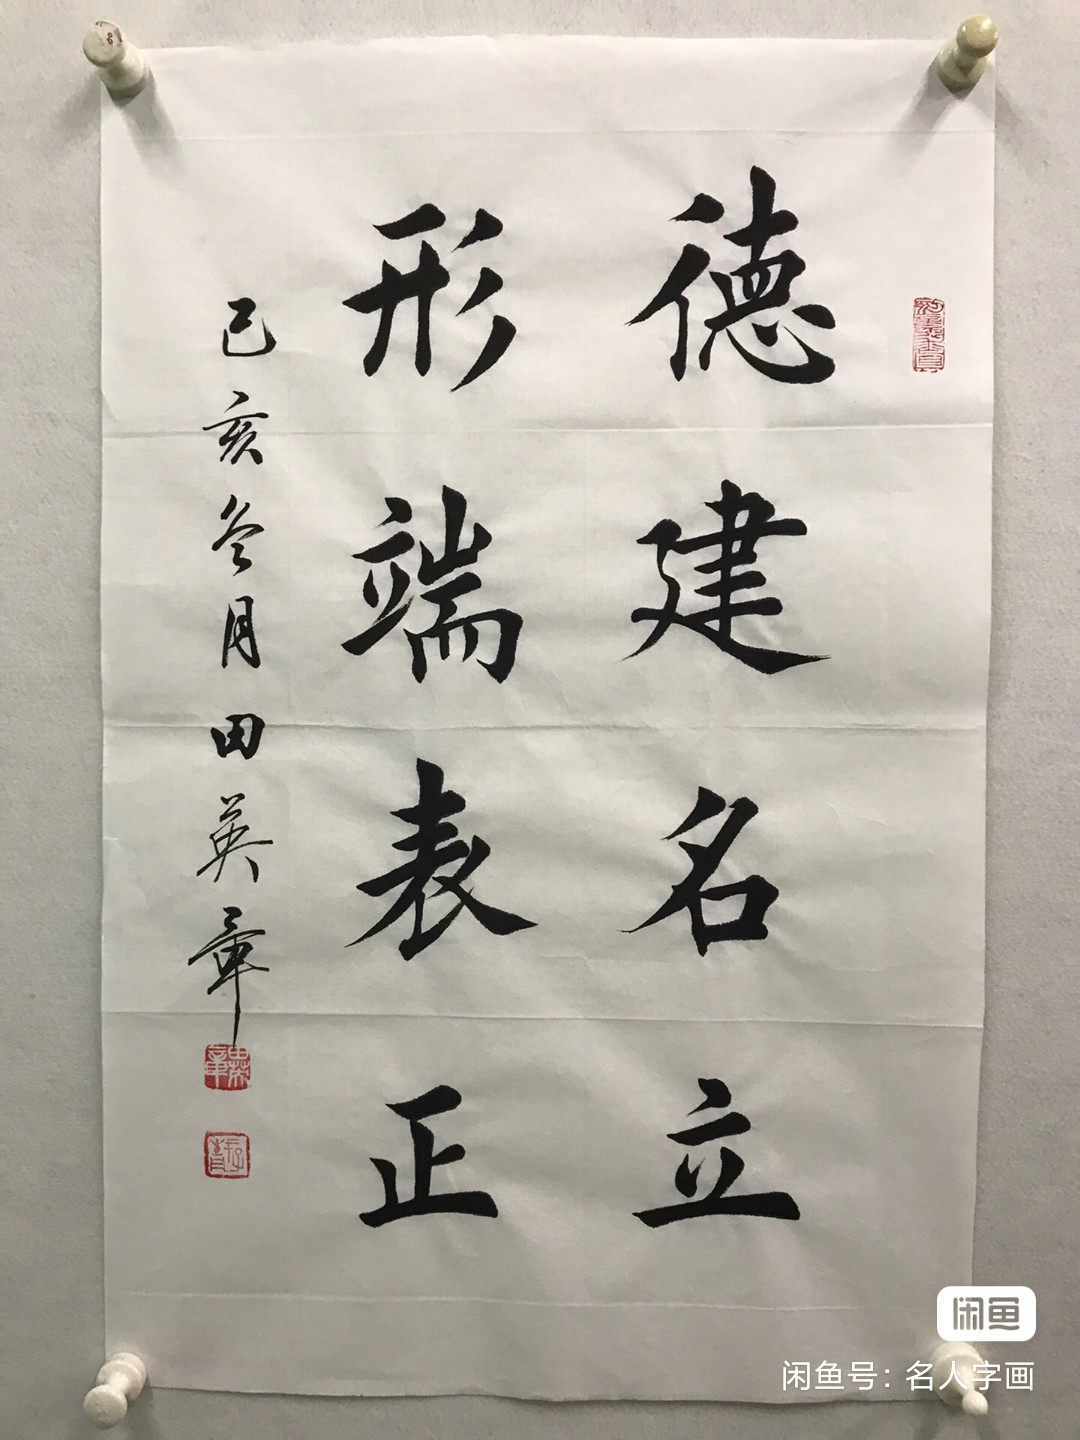 德建名立
形端表正
己亥冬月田英章
闲鱼
闲鱼号：名人字画